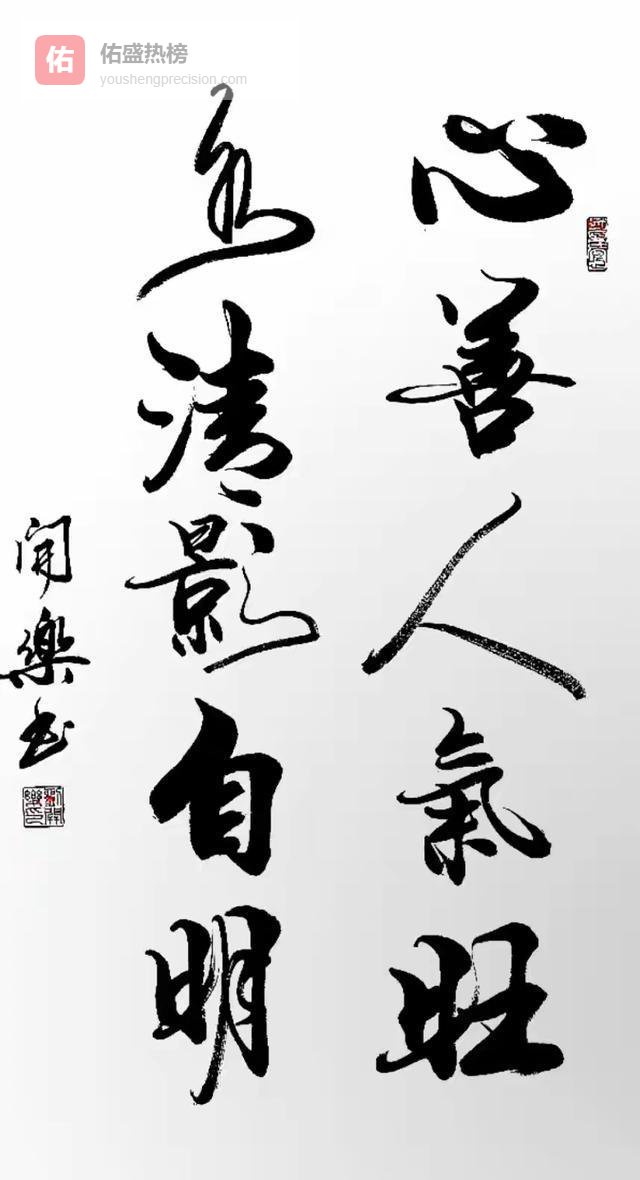 佑 佑盛热榜
youshengprecision.com
心善人氣旺
清影自明
開樂书